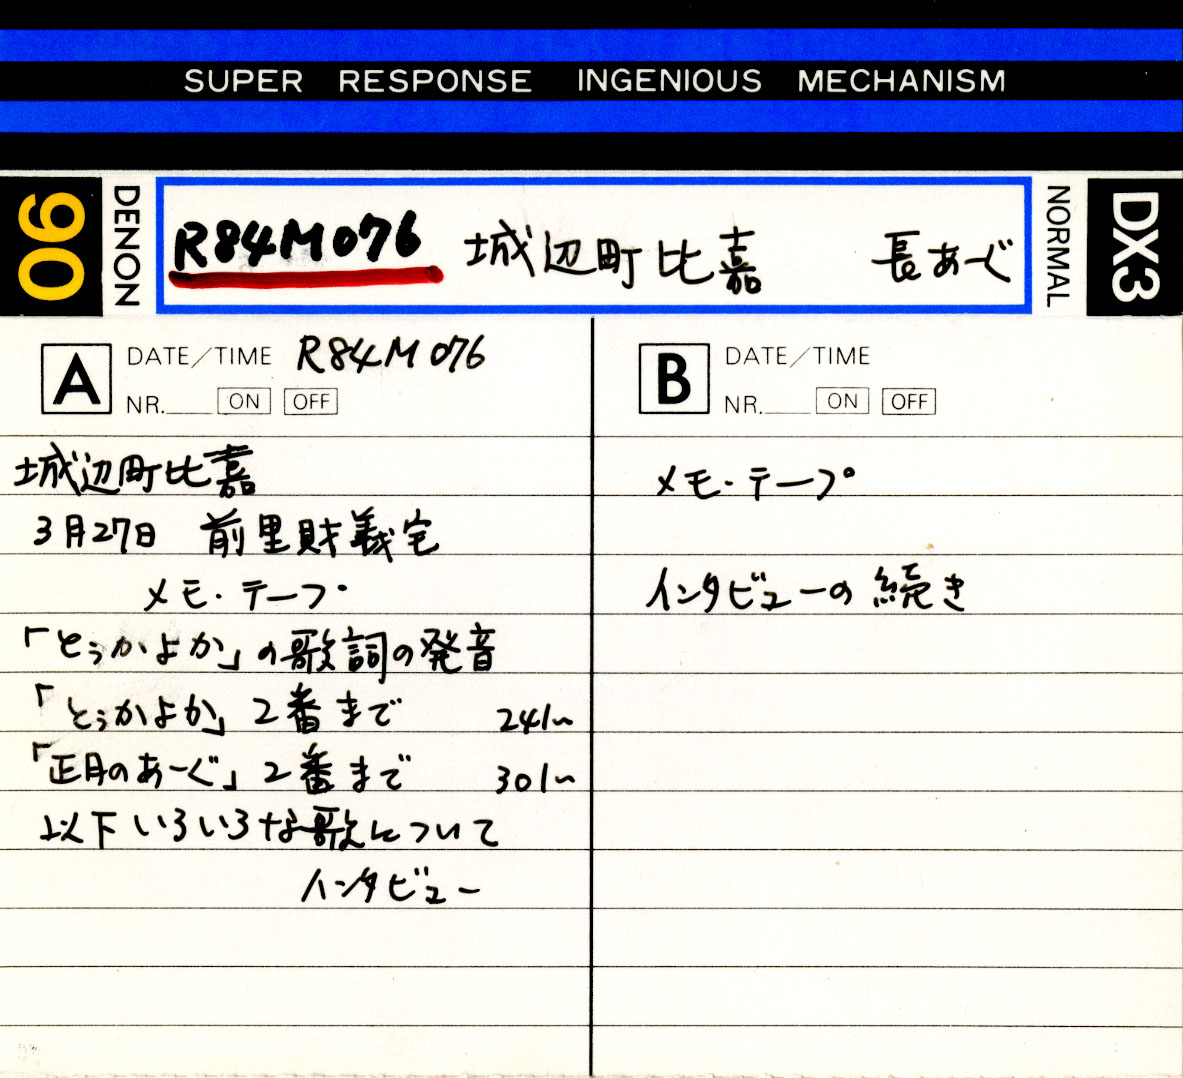 SUPER RESPONSE INGENIOUS MECHANISM
90
DENON
R84M076 城辺町比嘉 長あーぐ
NORMAL
DX3
A DATE/TIME R84M076
NR. ON OFF
城辺町比嘉
3月27日 前里財義宅
メモ・テープ
「とぅかよか」の歌詞の発音
「とぅかよか」2番まで 241~
「正月のあーぐ」2番まで 301~
以下いろいろな歌について
インタビュー
B DATE/TIME
NR. ON OFF
メモ・テープ
インタビューの続き